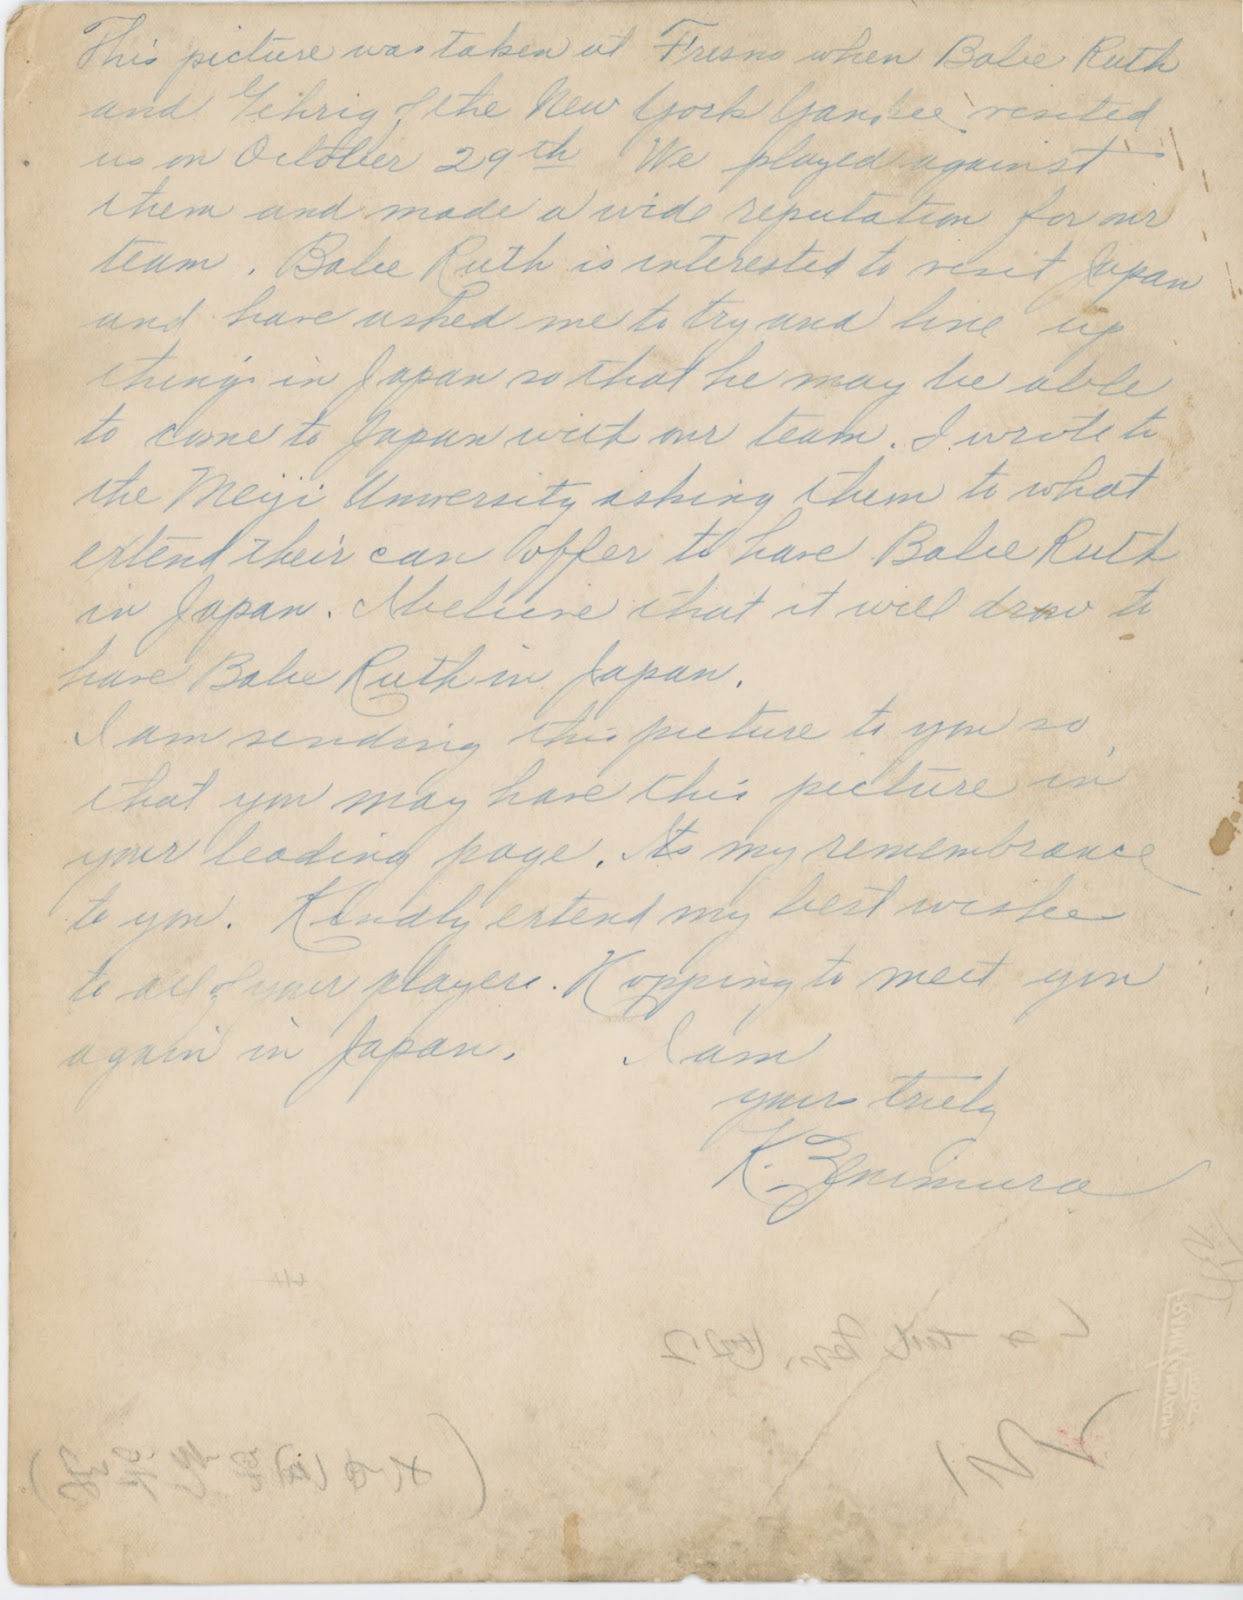 This picture was taken at Fresno when Babe Ruth
and Gehrig of the New York Yankee visited
us on October 29th We played against
them and made a wide reputation for our
team. Babe Ruth is interested to visit Japan
and have asked me to try and line up
things in Japan so that he may be able
to come to Japan with our team. I wrote to
the Meiji University asking them to what
extend their can offer to have Babe Ruth
in Japan. I believe that it will draw to
have Babe Ruth in Japan.
I am sending this picture to you so
that you may have this picture in
your leading page. Its my remembrance
to you. Kindly extend my best wishe
to all of your players. Hopping to meet you
again in Japan. I am
yours truely
K. Zenimura